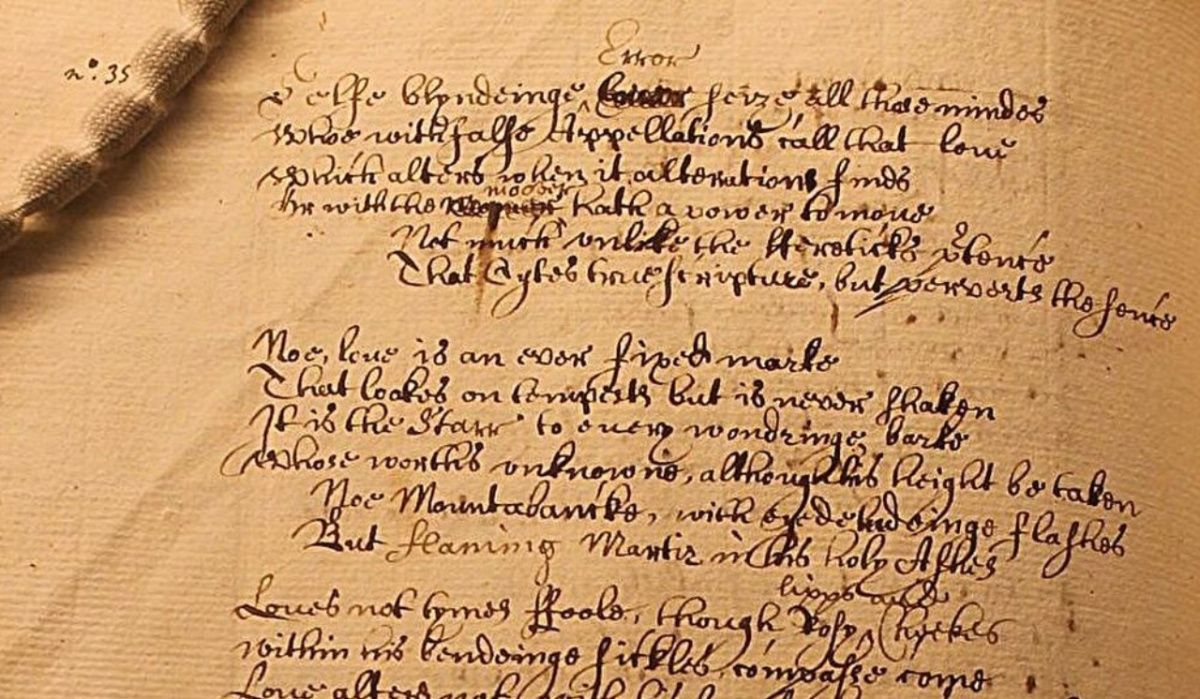 nº. 35
Error
Selfe blyndeinge seize all those mindes
Whoe with false Appellations call that love
Which alters when it alterations finds
moover
Or with the hath a power to move
Not much unlike the Hereticks ptence
That Cytes true scripture, but perverts the sence
Noe, love is an ever fixed marke
That lookes on tempests but is never shaken
It is the Starr to every wondringe barke
Whose worths unknowne, although his height be taken
Noe Mountabancke, with eyedeludeinge flashes
But flaming Martir in his holy Ashes
lipps and
Loves not tymes Foole, though Rosy Cheekes
within his bendeinge sickles compasse come
Love alters not with